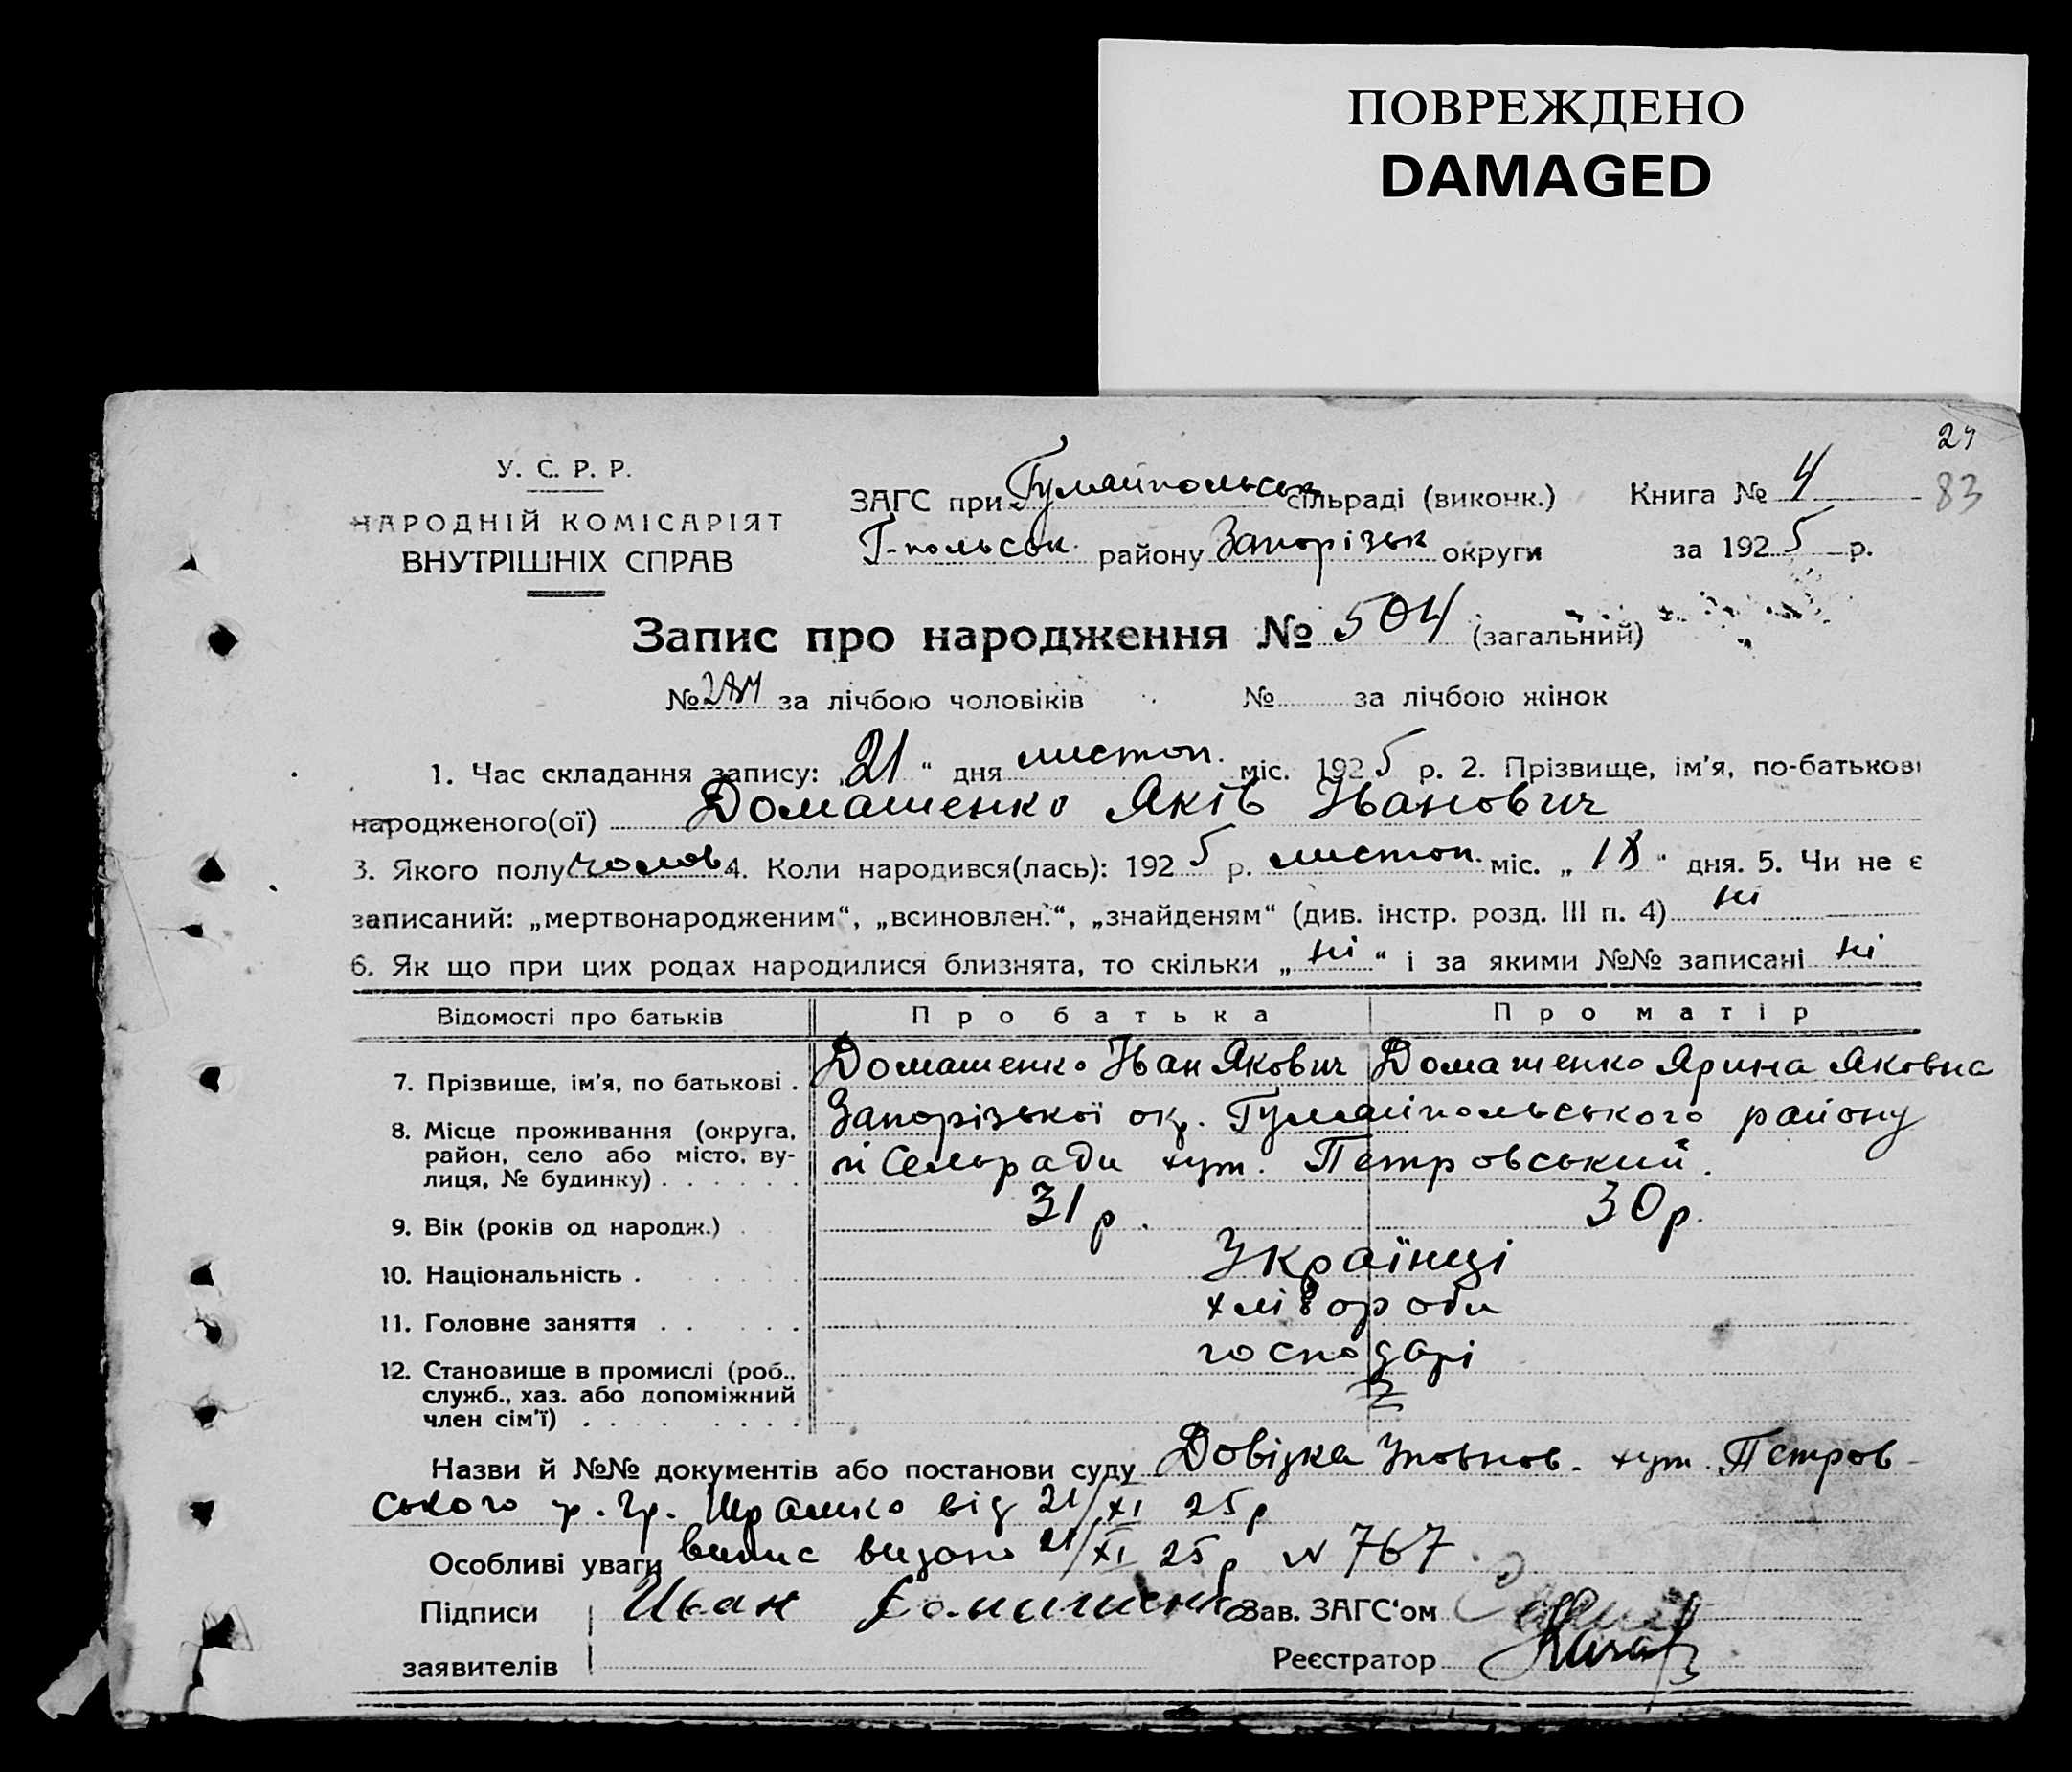 ПОВРЕЖДЕНО
DAMAGED
24
83
У. С. Р. Р.
НАРОДНІЙ КОМІСАРІЯТ
ВНУТРІШНІХ СПРАВ
ЗАГС при Гумайпольськ сільраді (виконк.) Книга № 4
Г-польськ. району Запорізьк округи за 1925 р.
Запис про народження № 504 (загальний)
№ за лічбою чоловіків № за лічбою жінок
1. Час складання запису: „21“ дня листоп. міс. 1925 р. 2. Прізвище, ім'я, по-батькові
народженого(ої) Домашенко Яків Іванович
3. Якого полу чолов 4. Коли народився(лась): 1925 р. листоп. міс. „18“ дня. 5. Чи не є
записаний: „мертвонародженим“, „всиновлен.“, „знайденям“ (див. інстр. розд. III п. 4) ні
6. Як що при цих родах народилися близнята, то скільки „ні“ і за якими №№ записані ні
Відомості про батьків Про батька Про матір
7. Прізвище, ім'я, по батькові . Домашенко Іван Якович Домашенко Ярина Яковна
8. Місце проживання (округа, район, село або місто, вулиця, № будинку) . . . . . . Запорізької окр. Гумайпольського району
й Сельради хут. Петровський.
9. Вік (років од народж.) . 31 р. 30 р.
10. Національність . Українці
11. Головне заняття . . . хлібороби
12. Становище в промислі (роб., служб., хаз. або допоміжний член сім'ї) . . . . . . господарі
Назви й №№ документів або постанови суду Довідка Уповнов. хут. Петров-
ського гр. Гр. від 21/XI 25 р
Особливі уваги випис видано 21/XI 25 р N 767.
Підписи Иван Домашенко Зав. ЗАГС'ом
заявителів Реєстратор